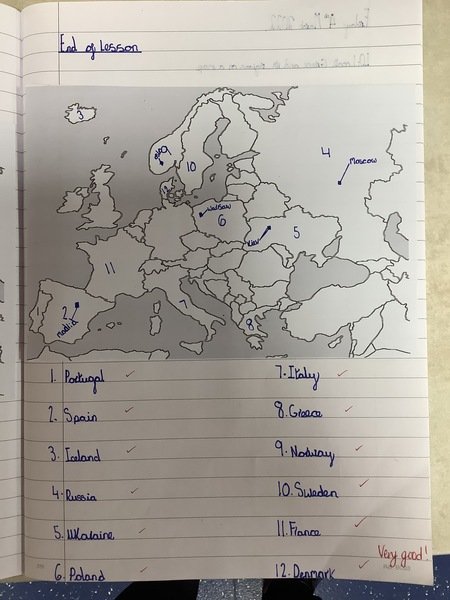 End of Lesson
3
Oslo
9
10
4
Moscow
Warsaw
6
Kiev
5
11
2
Madrid
7
8
1. Portugal
2. Spain
3. Iceland
4. Russia
5. Ukraine
6. Poland
7. Italy
8. Greece
9. Norway
10. Sweden
11. France
12. Denmark
Very good!